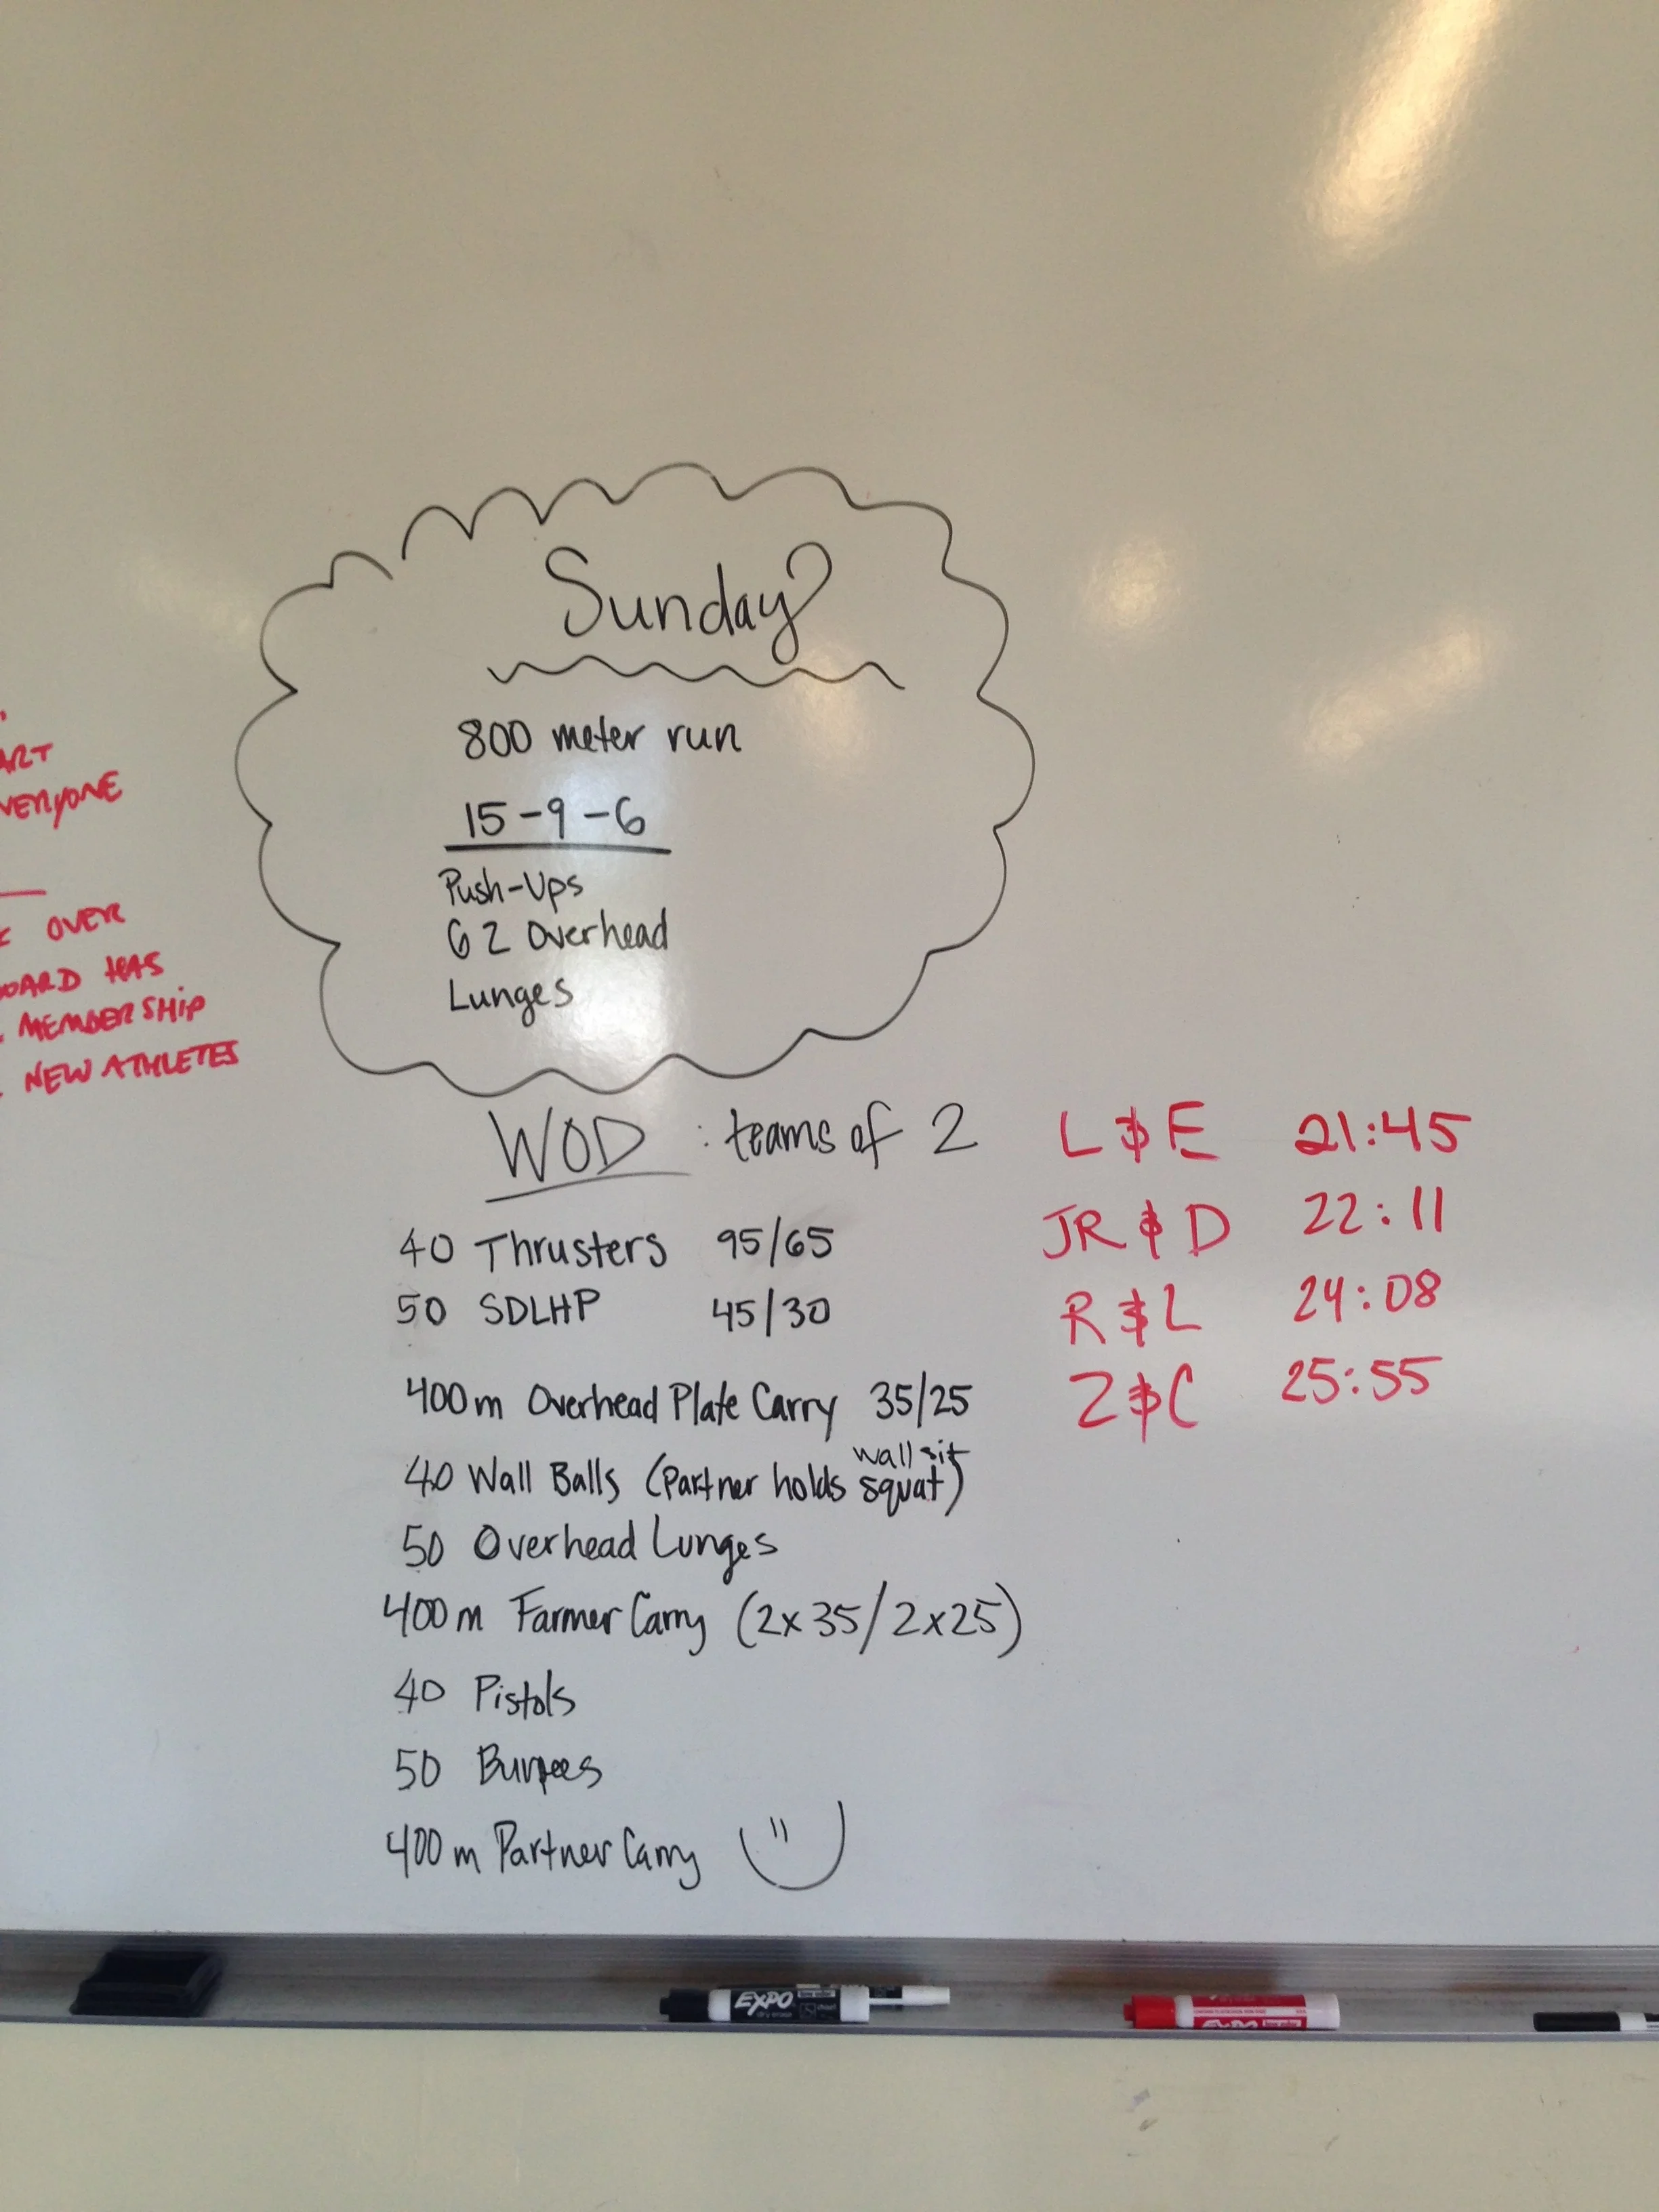 Sunday
800 meter run
15-9-6
Push-Ups
G2 Overhead
Lunges
ART
VERYONE
OVER
OARD HAS
MEMBERSHIP
NEW ATHLETES
WOD : teams of 2
40 Thrusters 95/65
50 SDLHP 45/30
400m Overhead Plate Carry 35/25
wall sit
40 Wall Balls (Partner holds squat)
50 Overhead Lunges
400m Farmer Carry (2x35/2x25)
40 Pistols
50 Burpees
400m Partner Carry
L & E 21:45
JR & D 22:11
R & L 24:08
Z & C 25:55
EXPO
EXPO